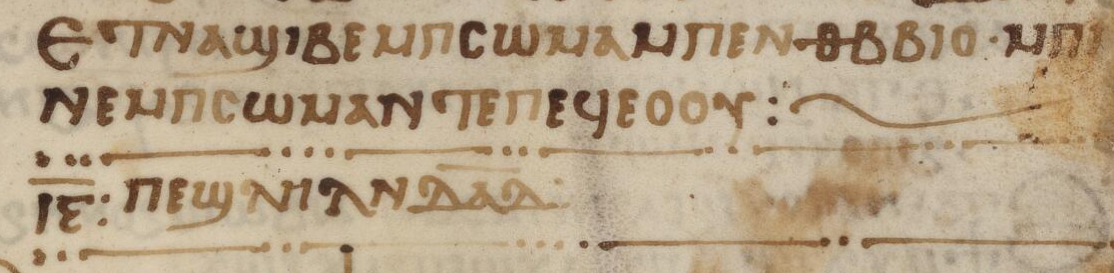 ⲉⲧⲛⲁϣⲓⲃⲉⲙⲡⲥⲱⲙⲁⲙⲡⲉⲛⲑⲃⲃⲓⲟ·ⲙⲡⲓ
ⲛⲉⲙⲡⲥⲱⲙⲁⲛⲧⲉⲡⲉϥⲉⲟⲟⲩ:
ⲓ̅ⲉ̅: ⲡⲉϣⲗⲏⲗⲛⲇ̅ⲁ̅ⲇ̅: